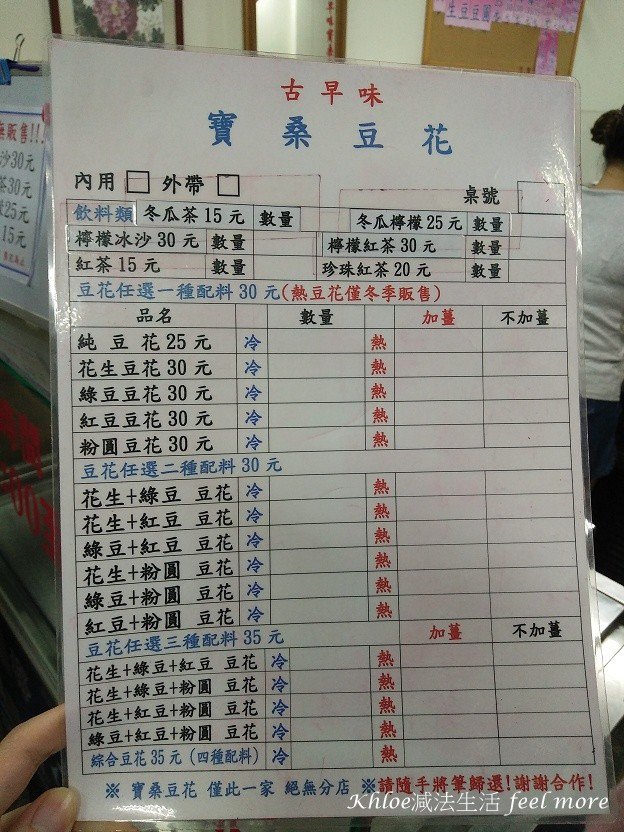 生豆豆圓
無販售!!!
沙30元
茶30元
25元
15元
古早味
寶桑豆花
內用 □ 外帶 □ 桌號
飲料類 冬瓜茶 15 元 數量 冬瓜檸檬 25 元 數量
檸檬冰沙 30 元 數量 檸檬紅茶 30 元 數量
紅茶 15 元 數量 珍珠紅茶 20 元 數量
豆花任選一種配料 30 元(熱豆花僅冬季販售)
品名 數量 加薑 不加薑
純 豆 花 25 元 冷 熱
花生豆花 30 元 冷 熱
綠豆豆花 30 元 冷 熱
紅豆豆花 30 元 冷 熱
粉圓豆花 30 元 冷 熱
豆花任選二種配料 30 元
花生+綠豆 豆花 冷 熱
花生+紅豆 豆花 冷 熱
綠豆+紅豆 豆花 冷 熱
花生+粉圓 豆花 冷 熱
綠豆+粉圓 豆花 冷 熱
紅豆+粉圓 豆花 冷 熱
豆花任選三種配料 35 元 加薑 不加薑
花生+綠豆+紅豆 豆花 冷 熱
花生+綠豆+粉圓 豆花 冷 熱
花生+紅豆+粉圓 豆花 冷 熱
綠豆+紅豆+粉圓 豆花 冷 熱
綜合豆花 35 元 (四種配料) 冷 熱
※ 寶桑豆花 僅此一家 絕無分店 ※請隨手將筆歸還!謝謝合作!
Khloe減法生活 feel more